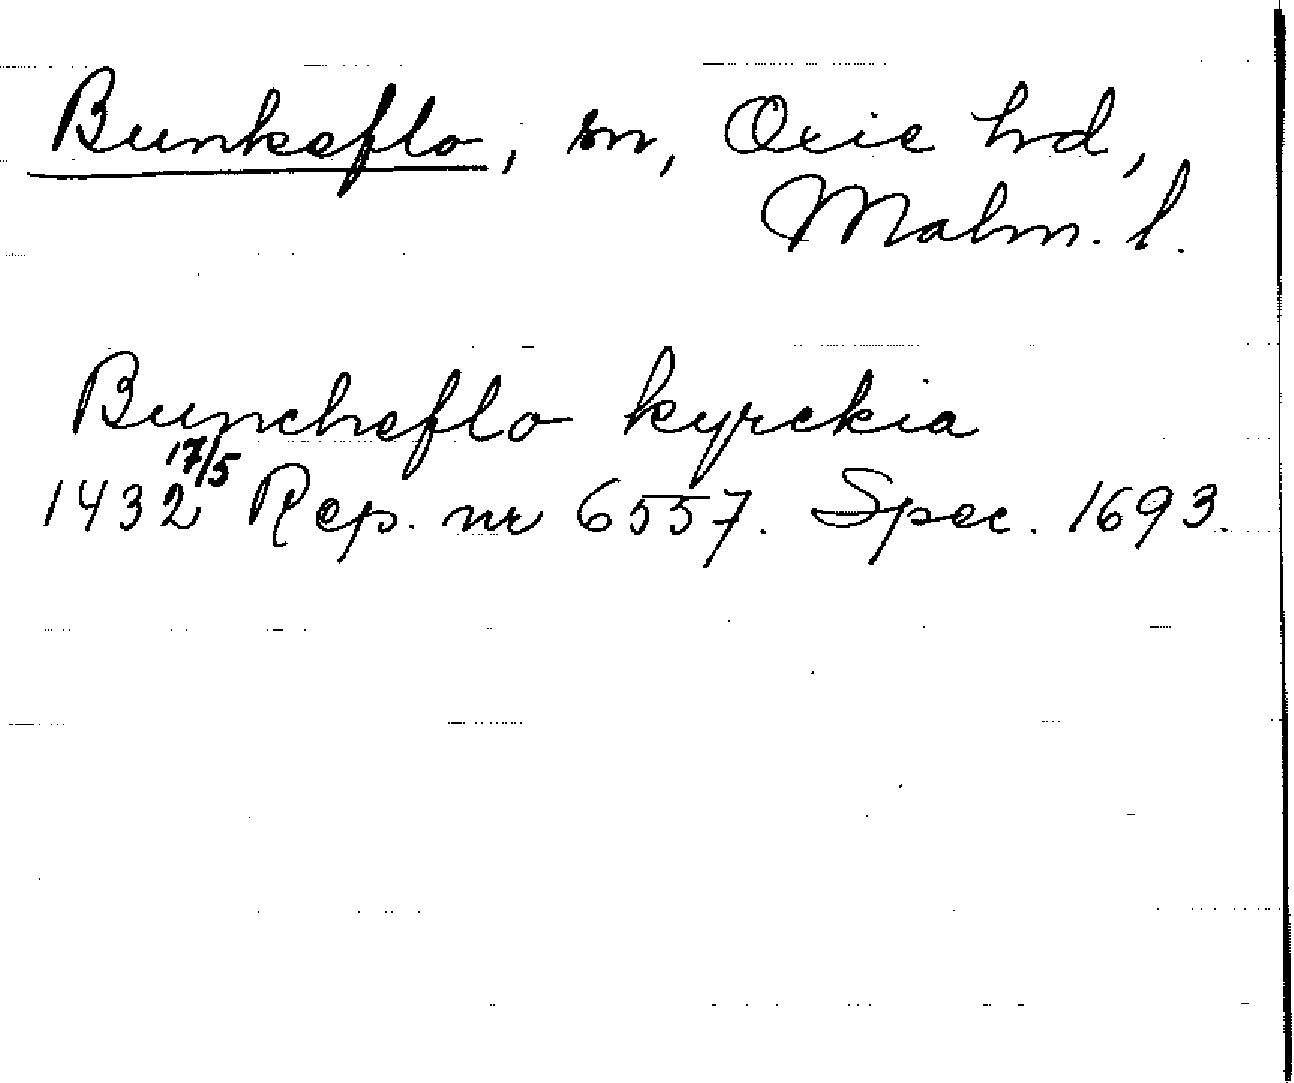 Bunkeflo, sn, Oxie hd,
Malm. l.
Buncheflo kyrckia
1432 17/5 Rep. nr 6557. Spec. 1693.